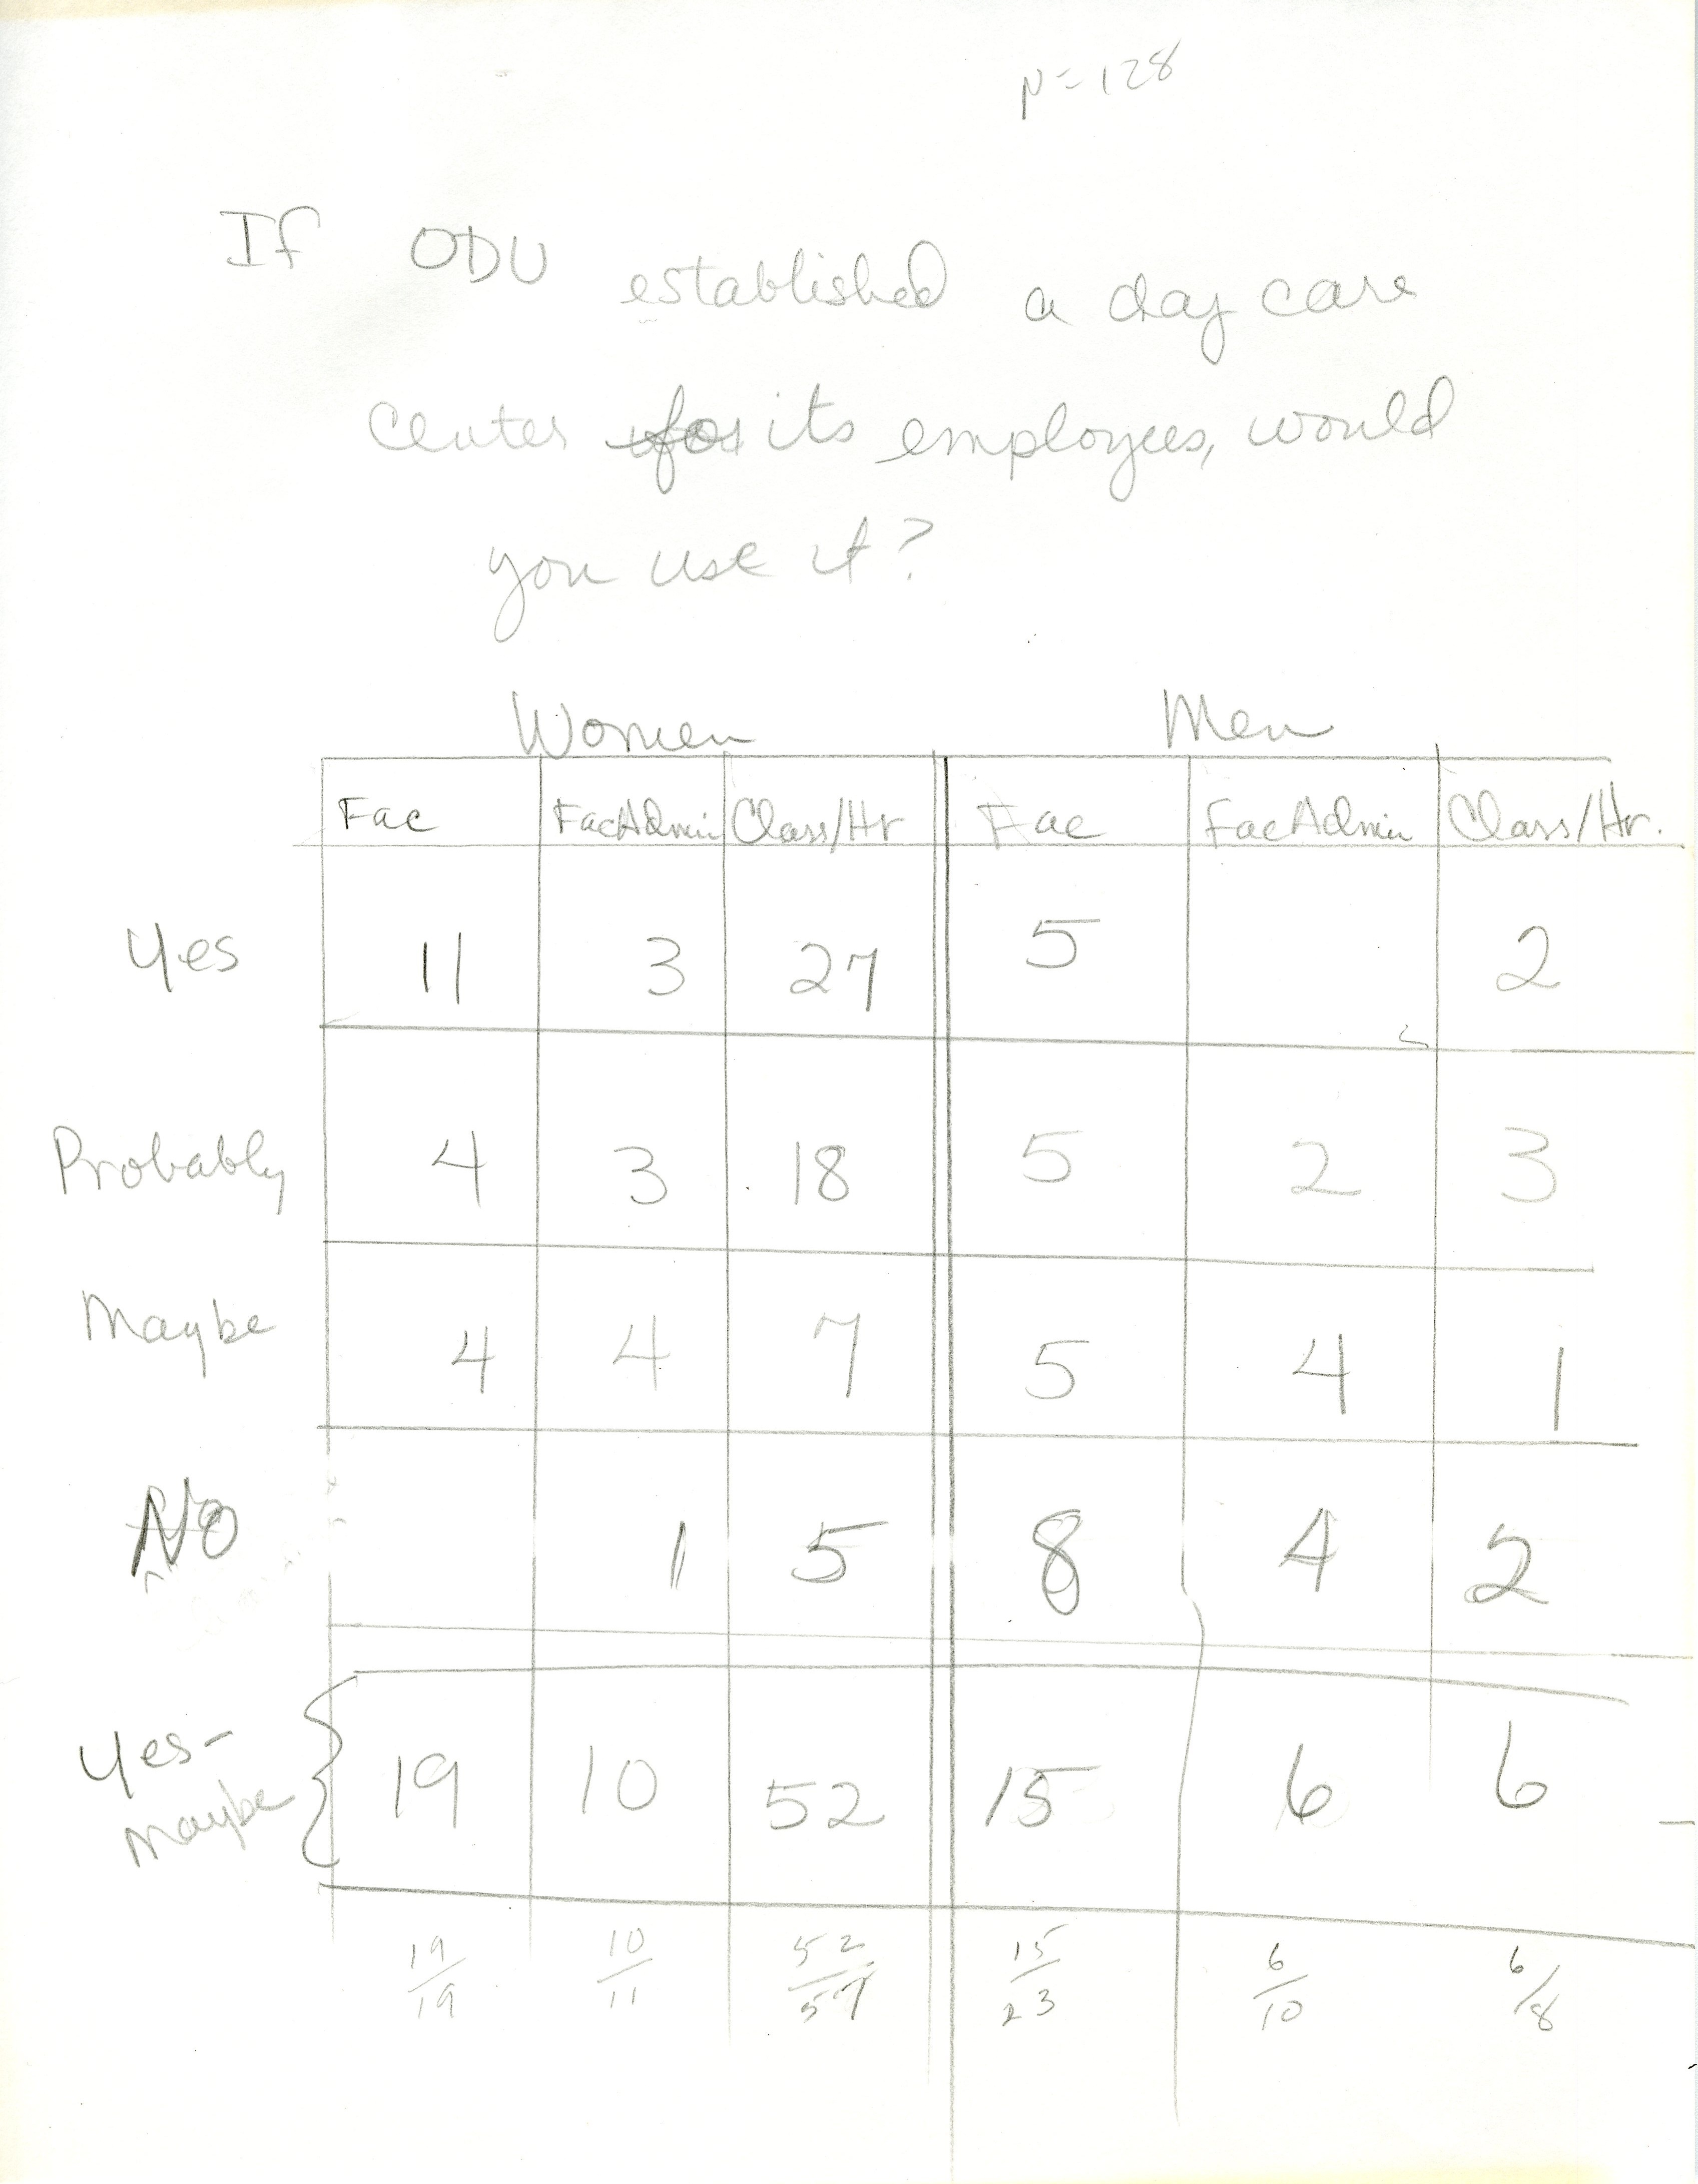 N=128
If ODU established a day care
center for its employees, would
you use it?
Women Men
Fac FacAdmin Class/Hr Fac FacAdmin Class/Hr.
Yes 11 3 27 5 2
Probably 4 3 18 5 2 3
Maybe 4 4 7 5 4 1
No 1 5 8 4 2
Yes-
Maybe 19 10 52 15 6 6
19/19 10/11 52/57 15/23 6/10 6/8